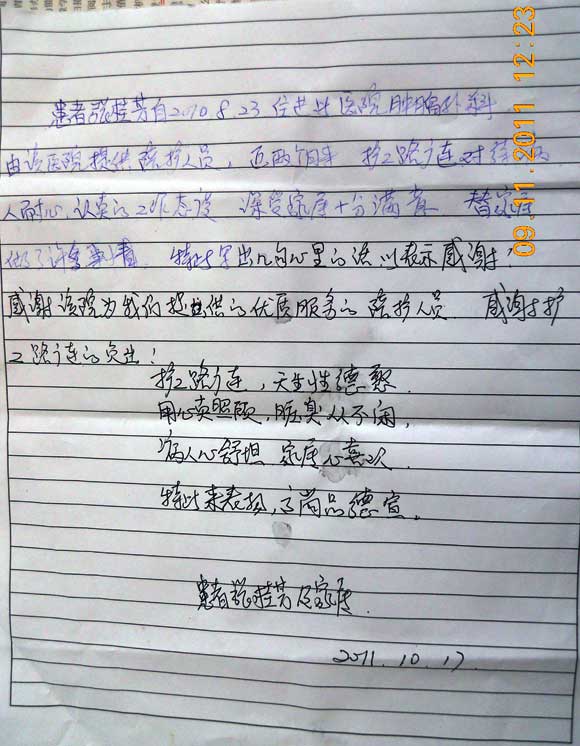 患者张桂芳自2010.8.23住进此医院肿瘤外科
由该医院提供陪护人员，近两个月来 护工路广连对待病
人耐心，认真的工作态度 深受家属十分满意 替家属
做了许多事情. 特此写出几句心里的话以表示感谢！
感谢该院为我们提供的优质服务的陪护人员. 感谢护
工路广连的负出！
护工路广连，天生性德憨.
用心真照顾，脏臭从不闲，
病人心舒坦 家属心喜欢.
特此来表扬，高尚品德宣.
患者张桂芳及家属.
2011.10.17.
09.11.2011 12:23